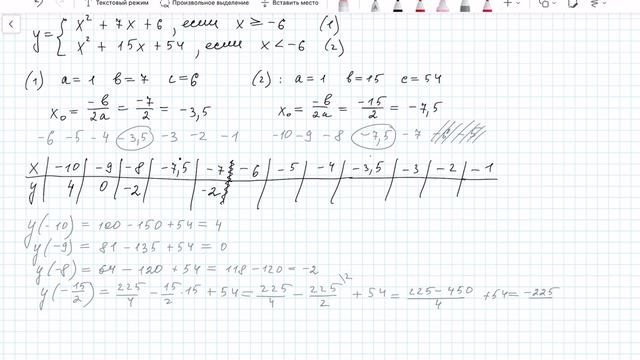 Текстовый режим Произвольное выделение Вставить место
y = { x² + 7x + 6, если x ≥ -6 (1)
x² + 15x + 54, если x < -6 (2)
(1) a = 1 b = 7 c = 6 (2): a = 1 b = 15 c = 54
x₀ = -b/2a = -7/2 = -3,5 x₀ = -b/2a = -15/2 = -7,5
-6 -5 -4 -3,5 -3 -2 -1 -10 -9 -8 -7,5 -7
x | -10 | -9 | -8 | -7,5 | -7 | -6 | -5 | -4 | -3,5 | -3 | -2 | -1
y | 4 | 0 | -2 | | -2
y(-10) = 100 - 150 + 54 = 4
y(-9) = 81 - 135 + 54 = 0
y(-8) = 64 - 120 + 54 = 118 - 120 = -2
y(-15/2) = 225/4 - 15/2 · 15 + 54 = 225/4 - 225/2 \2 + 54 = 225 - 450/4 + 54 = -225